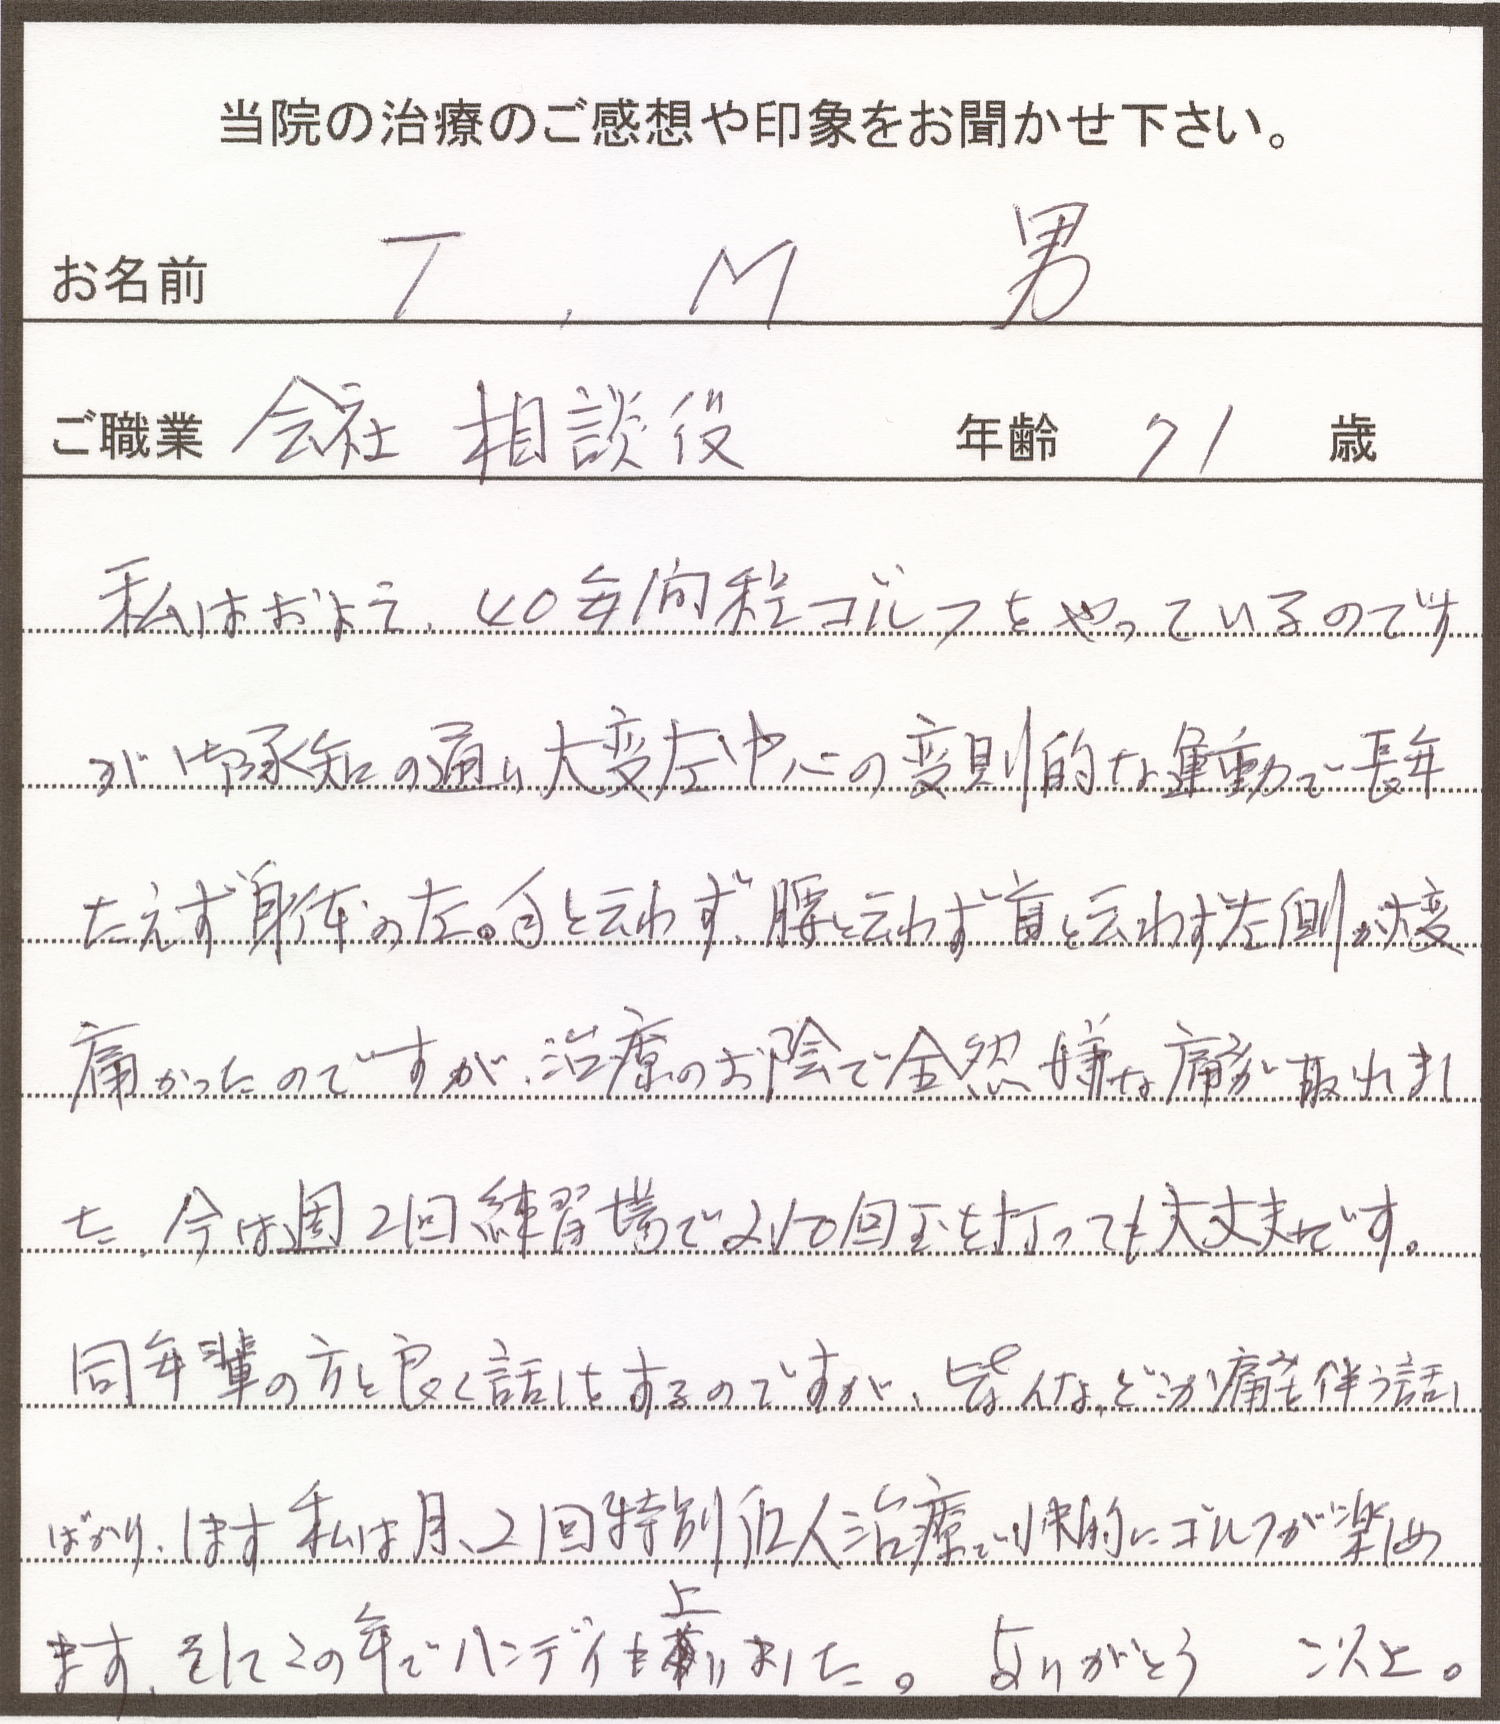 当院の治療のご感想や印象をお聞かせ下さい。
お名前 T . M 男
ご職業 会社 相談役 年齢 71 歳
私はおよそ、40年間程ゴルフをやっているのです
が御承知の通り大変左中心の変則的な運動で長年
たえず身体の左。手と云わず、腰と云わず首と云わず左側が大変
痛かったのですが、治療のお陰で全然嫌な痛が取れまし
た、今は週2回練習場で210回玉を打っても大丈夫です。
同年輩の方と良く話しをするのですが、皆んな、どこか痛を伴う話し
ばかり、します 私は月、2回特別個人治療で快適にゴルフが楽しめ
ます、そしてこの年でハンディも上りました。 ありがとう 以上。